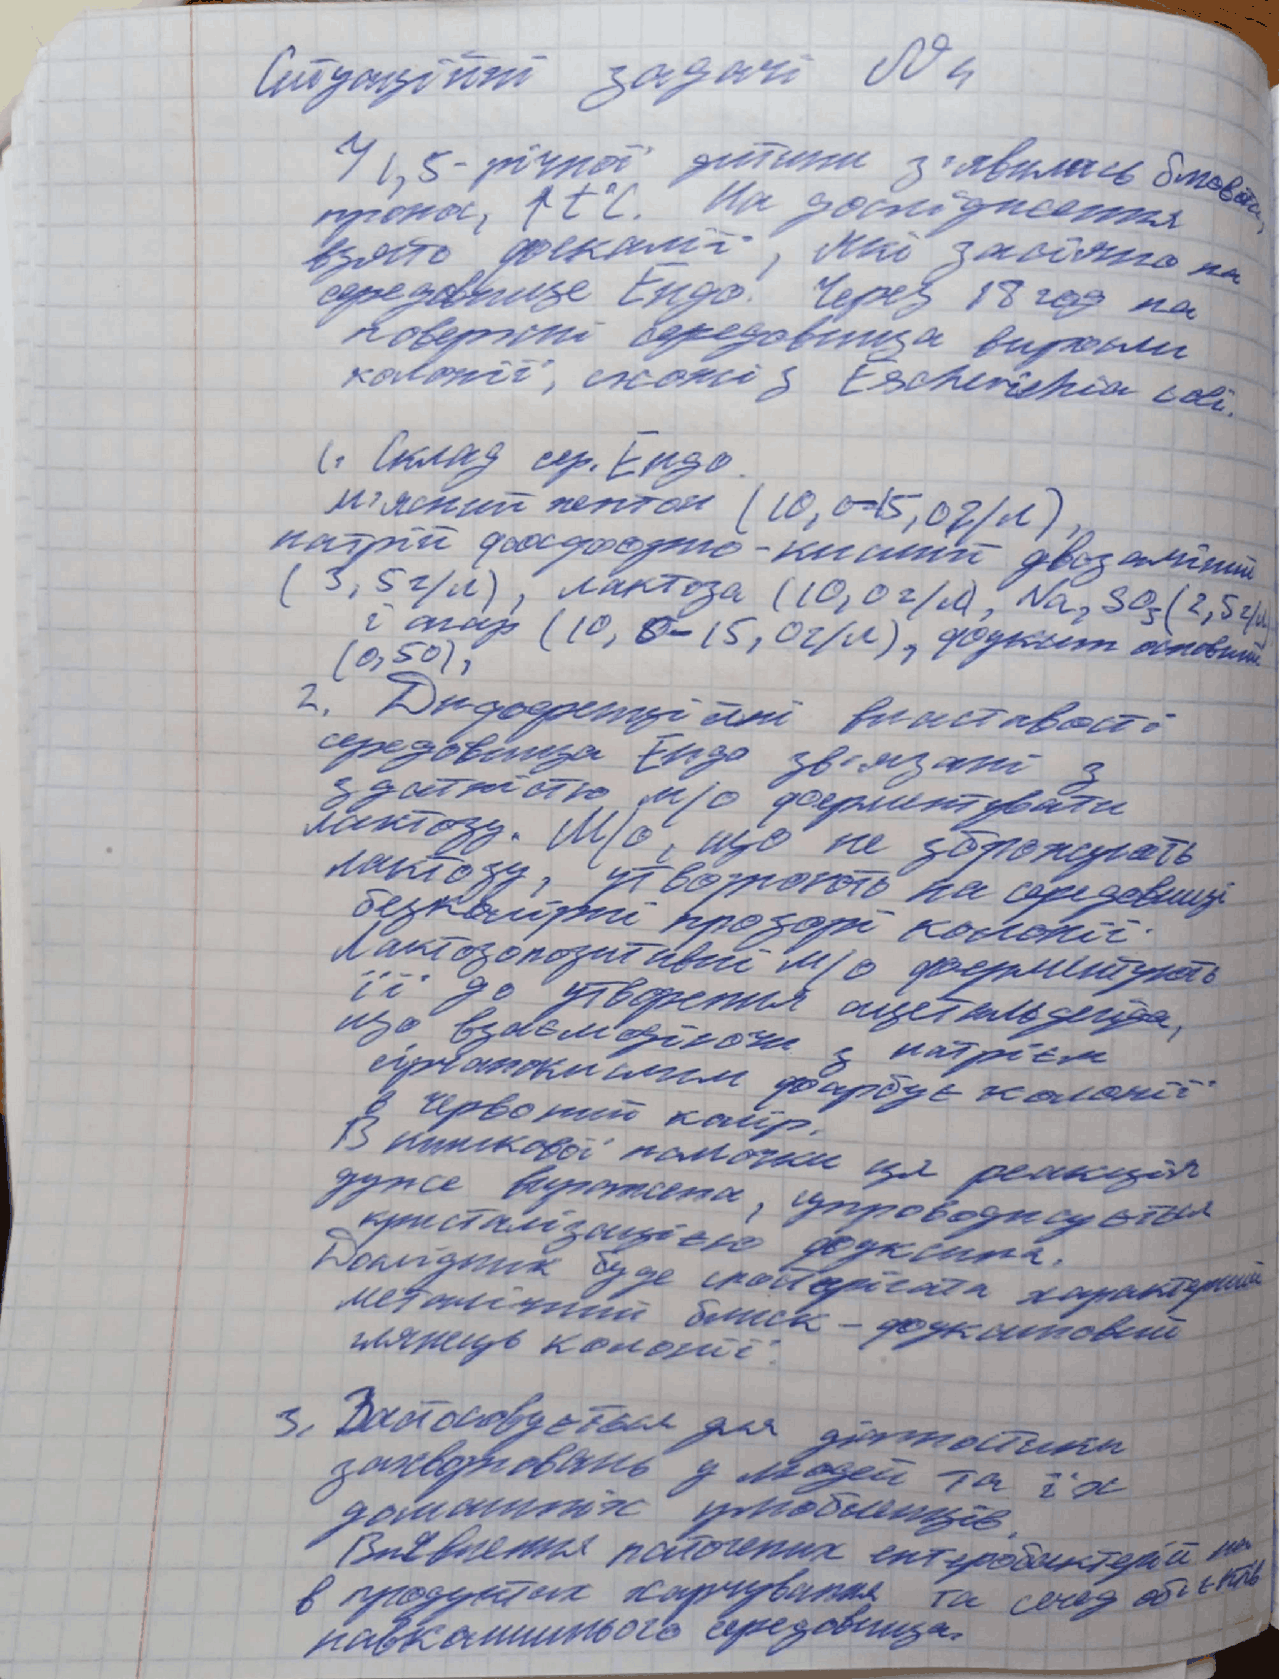 Ситуаційні задачі №4
У 1,5-річної дитини з'явилась блювота,
пронос, ↑t°C. На дослідження
взято фекалії, які засіяно на
середовище Ендо. Через 18 год на
поверхні середовища виросли
колонії, схожі з Escherichia coli.
1. Склад сер. Ендо.
м'ясний пептон (10,0-15,0 г/л),
натрій фосфорно-кислий двозамінний
(3,5 г/л), лактоза (10,0 г/л), Na₂SO₃ (2,5 г/л)
і агар (10,0-15,0 г/л), фуксин основний
(0,50),
2. Диференційні властивості
середовища Ендо зв'язані з
здатністю м/о ферментувати
лактозу. М/о, що не зброжують
лактозу, утворюють на середовищі
безколірні прозорі колонії.
Лактозопозитивні м/о ферментують
її до утворення ацетальдегіда,
що взаємодіючи з натрієм
сірчанокислим фарбує колонії
в червоний колір.
В кишкової палочки ця реакція
дуже виражена, супроводжується
кристалізацією фуксина.
Дослідник буде спостерігати характерний
металічний блиск - фуксиновий
глянець колонії.
3. Застосовується для діагностики
захворювань у людей та їх
домашніх улюбленців.
Виявлення патогених ентеробактерій
в продуктах харчування та серед об'єктів
навколишнього середовища.